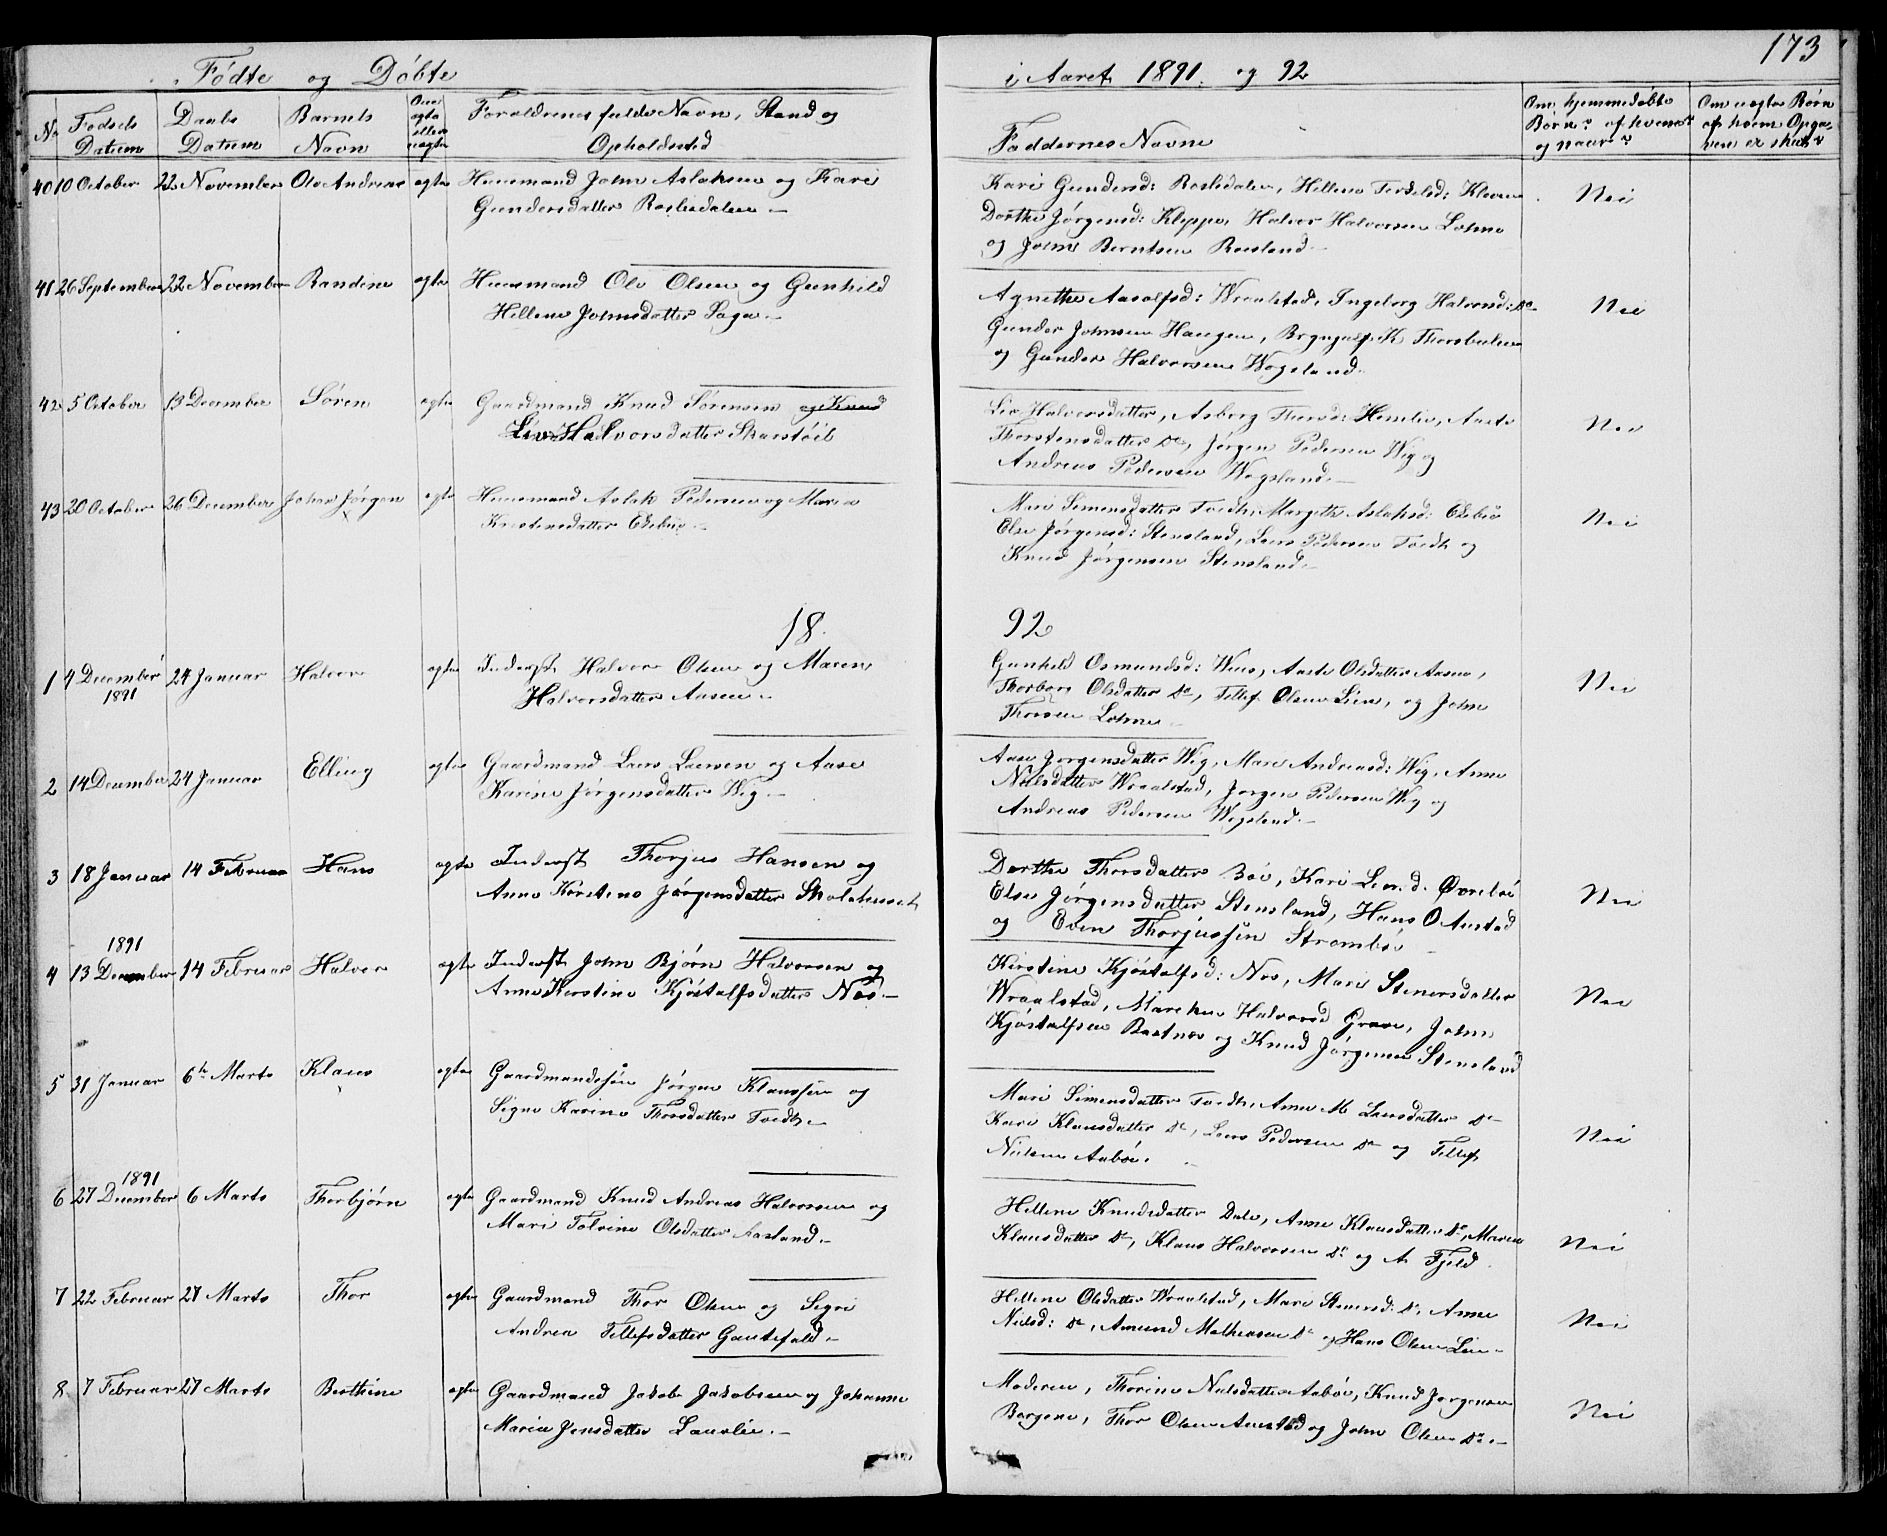 173
Fódte og Dóbte i Aaret 1891. og 92
No Fødsels Datum
Daabs Datum
Barnets Navn
ægte eller uægte
Forældrenes fulde Navn, Stand og Opholdssted
Faddernes Navne
Om hjemmedøbte Børn? af hvem? og naar?
Om uægte Børn af hvem Opgaven er skeet?
40 10 October 22 November Ole Andreas ægte Huusmand John Aslaksen og Kari
Gundersdatter
Kari Gundersd: Hellene Terjelsd: Kleven
Dorthe Jørgensd: Kleppe, Halvor Halvorsen Lohne
og John Berntsen
Nei
41 26 September 22 November Randine ægte Huusmand Ole Olsen og Gunhild
Hellene Johnsdatter Saga.—
Agnethe Aasolfsd: Wraalstad, Ingeborg Halvorsd: do
Gunder Johnsen Haugen, K Thorsbulien
og Gunder Halvorsen Wegsland.
Nei
42 5 October 13 December Søren ægte Gaardmand Knud Sørensen og Knud
Liv Halvorsdatter
Liv Halvorsdatter, Asborg Heimlie, Aaste
Thorstensdatter do, Jørgen Pedersen Wig og
Andreas Pedersen Wegsland.
Nei
43 20 October 26 December Johan Jørgen ægte Huusmand Aslak Pedersen og Maren
Kirstensdatter Ekebue.—
Mari Simensdatter Tvedt, Margith Aslaksd: Ekebue
Else Jørgensd: Stensland, Lars Pedersen Tvedt og
Knud Jørgensen Stensland.
Nei
18 92
1 4 December 1891 24 Januar Halvor ægte Inderst Halvor Olsen og Maren
Halvorsdatter Aasen.—
Gunhild Osmundsd: Aaste Olsdatter Aasen,
Thorborg Olsdatter do, Tellef Olsen Lien, og John
Thorsen Lohne.
Nei
2 14 December 24 Januar Elling ægte Gaardmand Lars Larsen og Aase
Karine Jørgensdatter Wig.—
Aase Jørgensdatter Wig, Mari Andreasd: Wig, Anne
Nielsdatter Wraalstad, Jørgen Pedersen Wig og
Andreas Pedersen Wegsland.—
Nei
3 18 Januar 14 Februar Hans ægte Inderst Thorjus Hansen og
Anne Kirstine Jørgensdatter Skolehuset
Dorthe Thorsdatter Bøe, Kari
Else Jørgensdatter Stensland, Hans O Austad
og Even Thorjussen Strømbøe
Nei
4 1891 13 December 14 Februar Halvor ægte Inderst John Bjørn Halvorsen og
Anne Kirstine Kjøstolfsdatter Næs.—
Kirstine Kjøstolfsd: Næs, Mari Stenersdatter
Wraalstad, Marthe Halvorsd Grave, John
Kjøstolfsen og Knud Jørgensen Stensland
Nei
5 31 Januar 6te Marts Klaus ægte Gaardmandssøn Jørgen Klaussen og
Signe Karine Thorsdatter Tvedt.—
Mari Simensdatter Tvedt, Anne M Larsdatter do
Kari Klausdatter do, Lars Pedersen do og Tellef
Nielsen Aabøe.
Nei
6 1891 27 December 6 Marts Thorbjørn ægte Gaardmand Knud Andreas Halvorsen og
Mari Tolvine Olsdatter
Hellene Knudsdatter Dale, Anne Klausdatter do, Maren
Klausdatter do, Klaus Halvorsen do og A. Fjeld.
Nei
7 22 Februar 27 Marts Thor ægte Gaardmand Thor Olsen og Sigri
Andrea Tellefsdatter Gautefald.—
Hellene Olsdatter Wraalstad, Mari Stenersd: do, Anne
Nielsd: do, Amund Mathiasen do og Hans Olsen Lien
Nei
8 7 Februar 27 Marts Berthine ægte Gaardmand Jakob Jakobsen og Johanne
Maria Jensdatter Lauvlie.—
Moderen, Thorine Nielsdatter Aabøe, Knud Jørgensen
Borgene, Thor Olsen Austad og John Olsen do.—
Nei